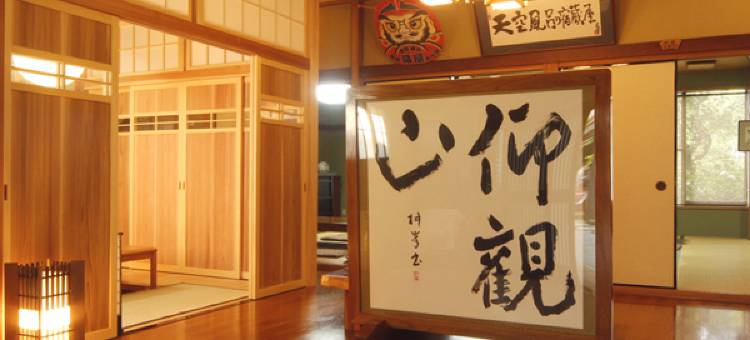 天空風呂の宿蔵屋
仰觀
山